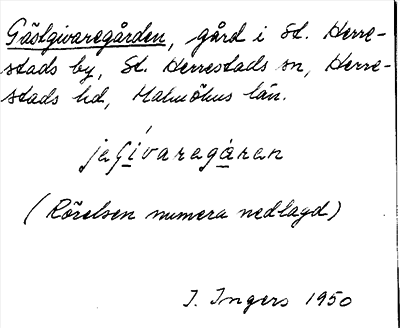 Gästgivaregården, gård i St. Herre-
stads by, St. Herrestads sn, Herre-
stads hd, Malmöhus län.
jaʃívaregáren
(Rörelsen numera nedlagd)
I. Ingers 1950